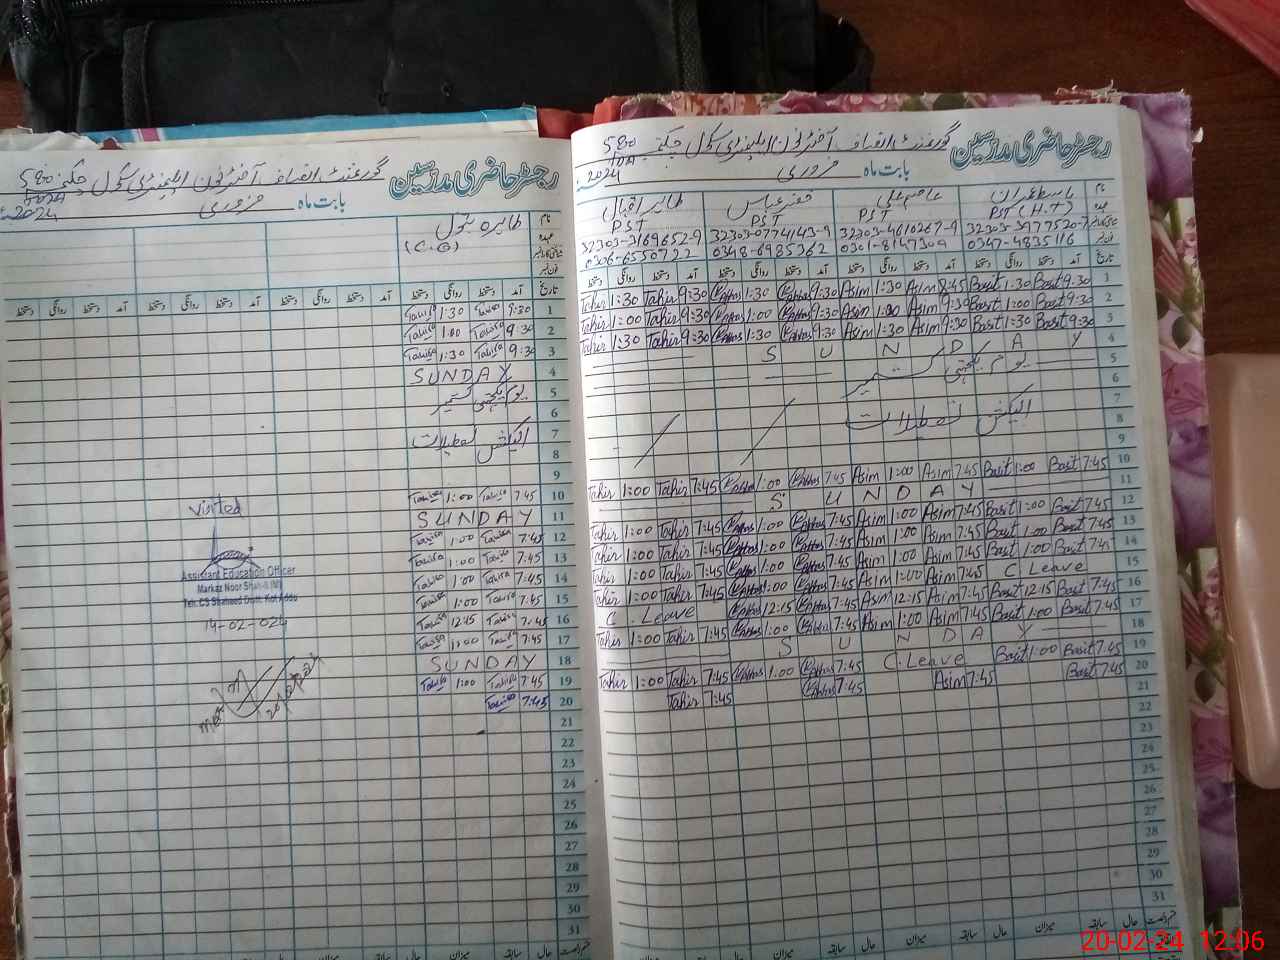 رجسٹر حاضری مدرسین
گورنمنٹ انصاف آفٹرنون ایلیمنٹری سکول چک نمبر 580
بابت ماہ فروری 2024
نام
عہدہ
(C.G)
تاریخ آمد دستخط روانگی دستخط آمد دستخط روانگی دستخط آمد دستخط روانگی دستخط آمد دستخط روانگی دستخط
1 9:30 Tahira 1:30 Tahira
2 9:30 Tahira 1:00 Tahira
3 9:30 Tahira 1:30 Tahira
4 SUNDAY
5 یوم یکجہتی کشمیر
6
7 الیکشن تعطیلات
8
9
10 7:45 Tahira 1:00 Tahira
11 SUNDAY
12 7:45 Tahira 1:00 Tahira
13 7:45 Tahira 1:00 Tahira
14 7:45 Tahira 1:00 Tahira
15 7:45 Tahira 1:00 Tahira
16 7:45 Tahira 12:15 Tahira
17 7:45 Tahira 1:00 Tahira
18 SUNDAY
19 7:45 Tahira 1:00 Tahira
20 7:45 Tahira
21
22
23
24
25
26
27
28
29
30
31
visited
Assistant Education Officer
Markaz Noor Shah
Teh: CS Shaheed Distt: Kot Addu
14-02-024
رجسٹر حاضری مدرسین
گورنمنٹ انصاف آفٹرنون ایلیمنٹری سکول چک نمبر 580
بابت ماہ فروری 2024
نام باسط عمران عاصم علی طاہر اقبال
عہدہ PST (H.T) PST PST PST
32303-3977520-7 32303-4610267-9 32303-0774143-9 32303-3169652-9
0347-4835116 0301-8147309 0348-6985362 0306-6550722
تاریخ آمد دستخط روانگی دستخط آمد دستخط روانگی دستخط آمد دستخط روانگی دستخط آمد دستخط روانگی دستخط
1 9:30 Basit 1:30 Basit 8:45 Asim 1:30 Asim 9:30 Abbas 1:30 Abbas 9:30 Tahir 1:30 Tahir
2 9:30 Basit 1:00 Basit 9:30 Asim 1:00 Asim 9:30 Abbas 1:00 Abbas 9:30 Tahir 1:00 Tahir
3 9:30 Basit 1:30 Basit 9:30 Asim 1:30 Asim 9:30 Abbas 1:30 Abbas 9:30 Tahir 1:30 Tahir
4 SUNDAY
5 یوم یکجہتی کشمیر
6
7 الیکشن تعطیلات
8
9
10 7:45 Basit 1:00 Basit 7:45 Asim 1:00 Asim 7:45 Abbas 1:00 Abbas 7:45 Tahir 1:00 Tahir
11 SUNDAY
12 7:45 Basit 1:00 Basit 7:45 Asim 1:00 Asim 7:45 Abbas 1:00 Abbas 7:45 Tahir 1:00 Tahir
13 7:45 Basit 1:00 Basit 7:45 Asim 1:00 Asim 7:45 Abbas 1:00 Abbas 7:45 Tahir 1:00 Tahir
14 7:45 Basit 1:00 Basit 7:45 Asim 1:00 Asim 7:45 Abbas 1:00 Abbas 7:45 Tahir 1:00 Tahir
15 C Leave 7:45 Asim 1:00 Asim 7:45 Abbas 1:00 Abbas 7:45 Tahir 1:00 Tahir
16 7:45 Basit 12:15 Basit 7:45 Asim 12:15 Asim 7:45 Abbas 12:15 Abbas C. Leave
17 7:45 Basit 1:00 Basit 7:45 Asim 1:00 Asim 7:45 Abbas 1:00 Abbas 7:45 Tahir 1:00 Tahir
18 SUNDAY
19 7:45 Basit 1:00 Basit C. Leave 7:45 Abbas 1:00 Abbas 7:45 Tahir 1:00 Tahir
20 7:45 Basit 7:45 Asim 7:45 Abbas 7:45 Tahir
21
22
23
24
25
26
27
28
29
30
31
20-02-24 12:06